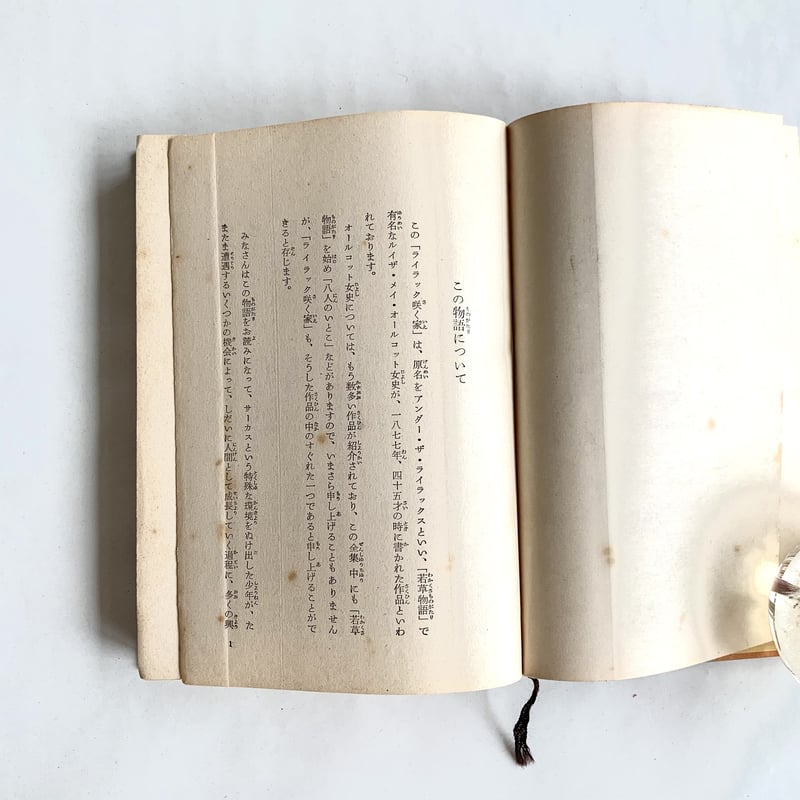 この物語について
この「ライラック咲く家」は、原名をアンダー・ザ・ライラックスといい、「若草物語」で
有名なルイザ・メイ・オールコット女史が、一八七七年、四十五才の時に書かれた作品といわ
れております。
オールコット女史については、もう数多い作品が紹介されており、この全集中にも「若草
物語」を始め「八人のいとこ」などがありますので、いまさら申し上げることもありません
が、「ライラック咲く家」も、そうした作品の中のすぐれた一つであると申し上げることがで
きると存じます。
みなさんはこの物語をお読みになって、サーカスという特殊な環境をぬけ出した少年が、た
またま遭遇するいくつかの機会によって、しだいに人間として成長していく過程に、多くの興
1